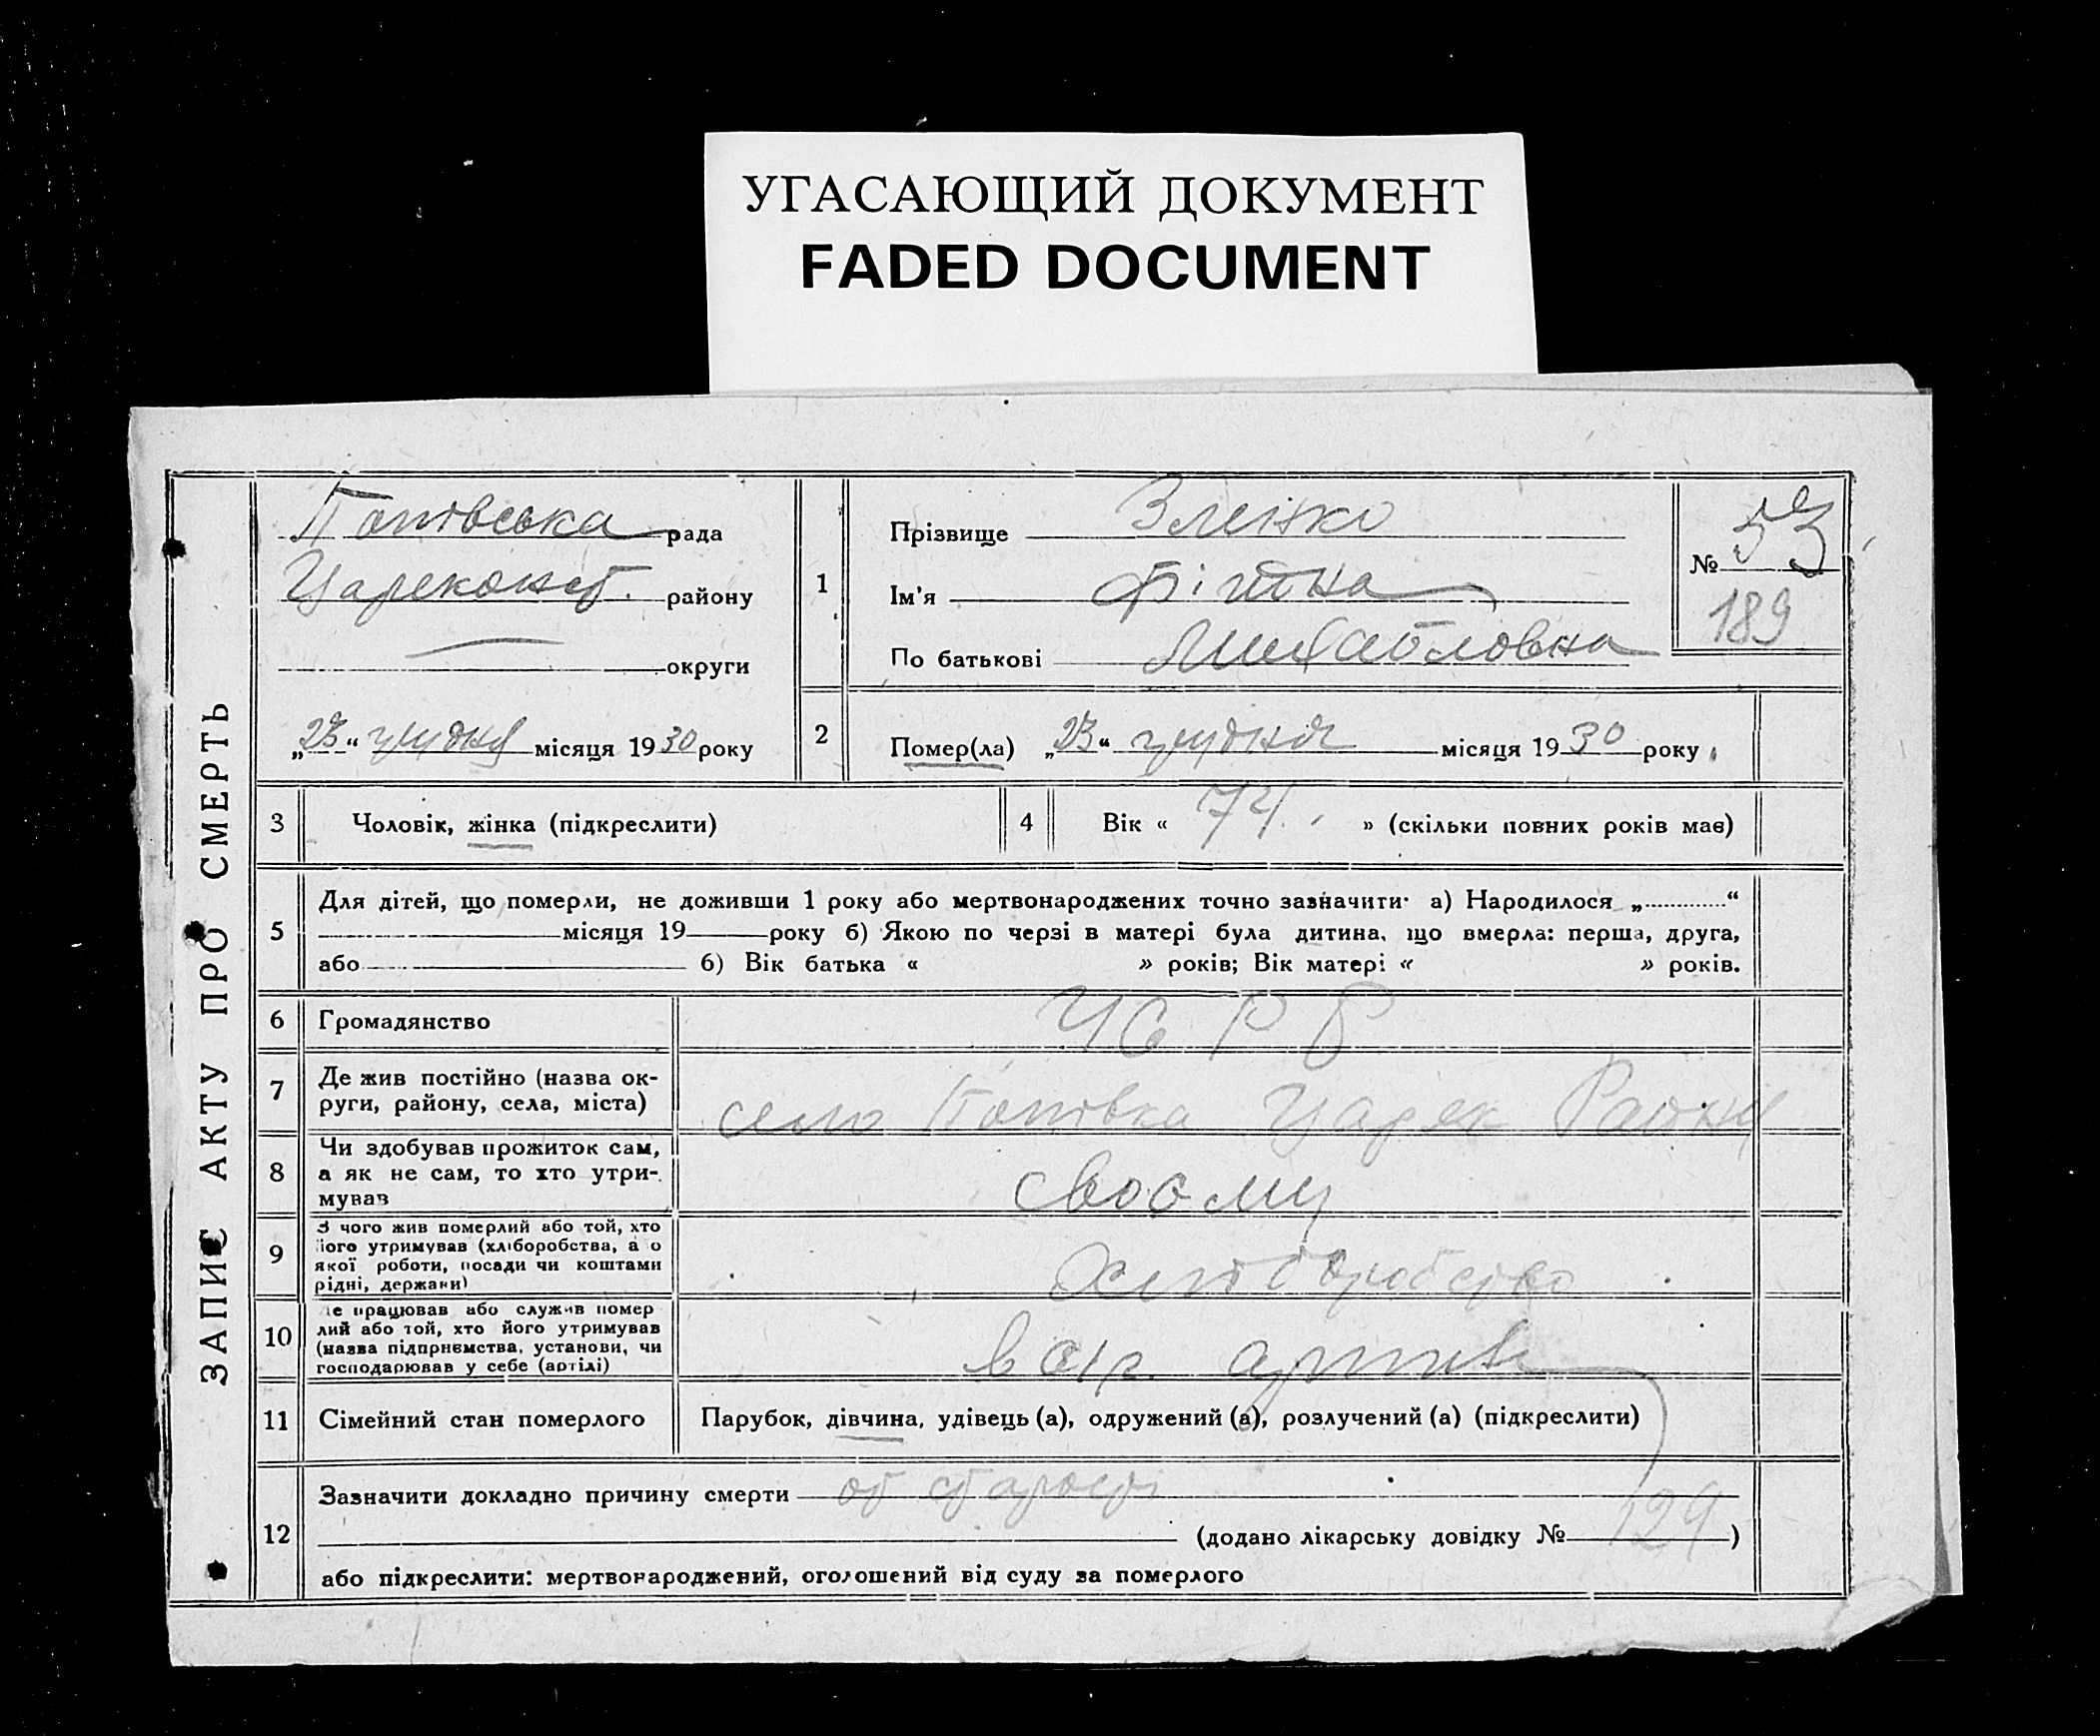 УГАСАЮЩИЙ ДОКУМЕНТ
FADED DOCUMENT
ЗАПИС АКТУ ПРО СМЕРТЬ
Попівська рада
району
округи
„23“ грудня місяця 1930 року
1
Прізвище Зленко
Ім'я
По батькові Михайловна
№ 53
189
2
Помер(ла) „23“ грудня місяця 1930 року
3
Чоловік, жінка (підкреслити)
4
Вік « 74 » (скільки повних років має)
5
Для дітей, що померли, не доживши 1 року або мертвонароджених точно зазначити· а) Народилося „ “
місяця 19 року б) Якою по черзі в матері була дитина, що вмерла: перша, друга,
або б) Вік батька « » років; Вік матері « » років.
6
Громадянство УСРР
7
Де жив постійно (назва ок-
руги, району, села, міста)
село Попівка Царек Району
8
Чи здобував прожиток сам,
а як не сам, то хто утри-
мував
9
З чого жив померлий або той, хто
його утримував (хліборобства, а о
якої роботи, посади чи коштами
рідні, держави)
10
Де працював або служив помер
лий або той, хто його утримував
(назва підприємства, установи, чи
господарював у себе (артілі)
11
Сімейний стан померлого
Парубок, дівчина, удівець (а), одружений (а), розлучений (а) (підкреслити)
12
Зазначити докладно причину смерти от старости
(додано лікарську довідку № 129)
або підкреслити: мертвонароджений, оголошений від суду за померлого